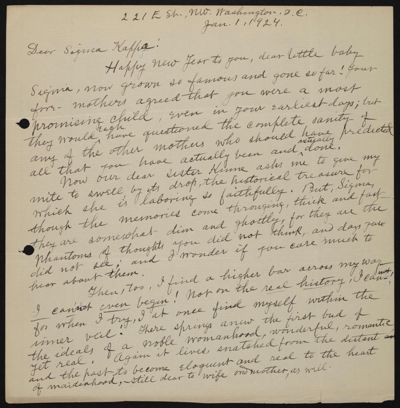 221 E St., N.W. Washington, D.C.
Jan. 1, 1924.
Dear Sigma Kappa:
Happy New Year to you, dear little baby
Sigma, now grown so famous and gone so far! Your
fore-mothers agreed that you were a most
promising child, even in your earliest days; but
they would have questioned the complete sanity of
any of the other mothers who should have predicted
all that you have actually been and done.
Now our dear sister Kinne asks me to give my
mite to swell by its drop, the historical treasure for
which she is laboring so faithfully. But, Sigma,
though the memories come thronging, thick and fast
they are somewhat dim and ghostly, for they are the
phantoms of thoughts you did not think, and days you
did not see; and I wonder if you care much to
hear about them.
Then, too, I find a higher bar across my way.
I cannot even begin! Not on the real history, I can't,
for when I try, I at once find myself within the
inner veil! There springs anew the first bud of
the ideals of a noble womanhood, wonderful, romantic
yet real. Again it lives, snatched from the distant
and the past to become eloquent and real to the heart
of maidenhood,—still dear to wife and mother, as well.